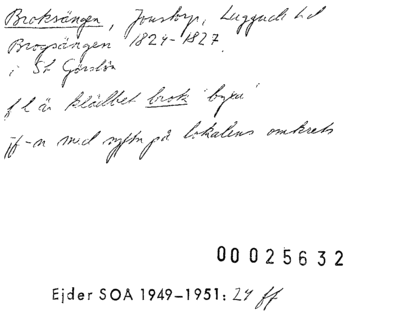 Broksängen, Jonstorp, Luggude hd
Brogsängen 1824-1827
i St Görslöv
f l är klädbet brok 'byxa'
jf-n med syftn på lokalens omkrets
00025632
Ejder SOA 1949–1951: 24 ff